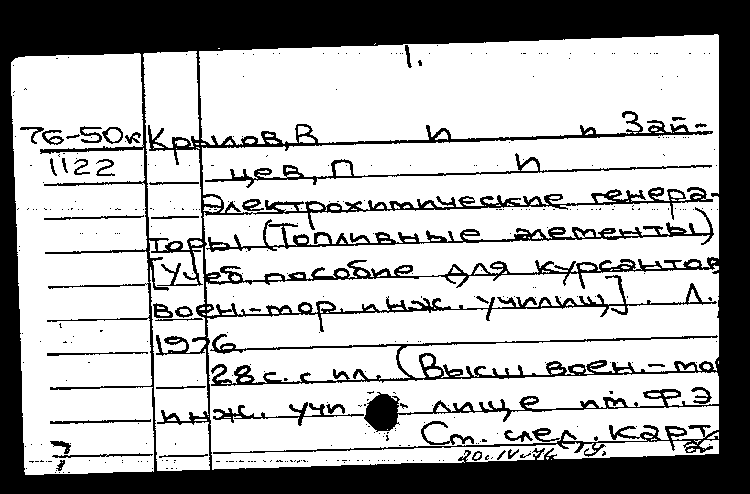 1.
76-50к Крылов, В и и Зай-
1122 цев, П и
Электрохимические генера-
торы. (Топливные элементы)
[Учеб. пособие для курсантов
воен.-мор. инж. училищ]. Л.,
1976.
28 с. с ил. (Высш. воен.-мор
инж. учи лище им. Ф.Э
См. след. карт.
20.IV.76